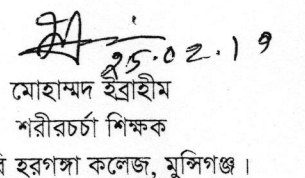 25.02.19
মোহাম্মদ ইব্রাহীম
শরীরচর্চা শিক্ষক
হরগঙ্গা কলেজ, মুন্সিগঞ্জ।